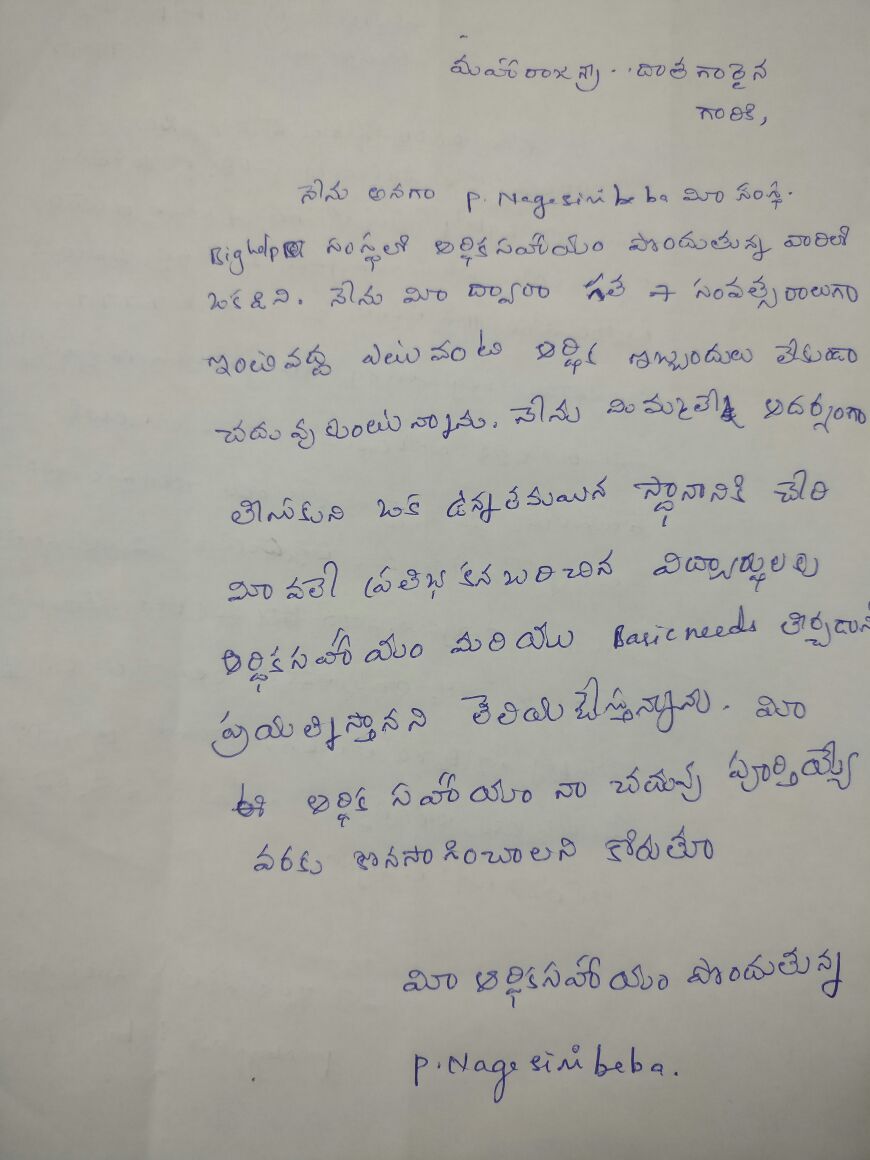 మహారాజశ్రీ.. దాత గారైన
గారికి,
నేను అనగా P. Nagesiri beba మీ సంస్థ.
Bighelp సంస్థలో ఆర్థిక సహాయం పొందుతున్న వారిలో
ఒకడిని. నేను మీ ద్వారా గత 7 సంవత్సరాలుగా
ఇంటివద్ద ఎటువంటి ఆర్థిక ఇబ్బందులు లేకుండా
చదువుకుంటున్నాను. నేను మిమ్మల్ని ఆదర్శంగా
తీసుకుని ఒక ఉన్నతమయిన స్థానానికి చేరి
మీ వలే ప్రతిభ కనబరిచిన విద్యార్థులకు
ఆర్థిక సహాయం మరియు Basic needs తీర్చడానికి
ప్రయత్నిస్తానని తెలియచేస్తున్నాను. మీ
ఈ ఆర్థిక సహాయం నా చదువు పూర్తియ్యే
వరకు కొనసాగించాలని కోరుతూ
మీ ఆర్థిక సహాయం పొందుతున్న
P. Nagesiri beba.